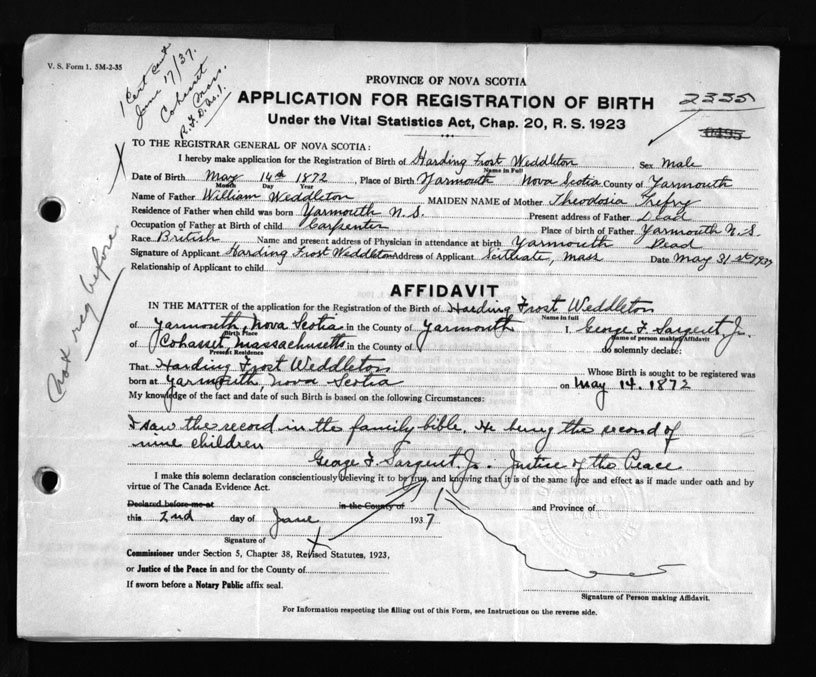 V. S. Form 1. 5M-2-35
1 Cert sent
June 17/37.
Cohasset
Mass.
R.F.D. No. 1.
PROVINCE OF NOVA SCOTIA
APPLICATION FOR REGISTRATION OF BIRTH
2335
Under the Vital Statistics Act, Chap. 20, R. S. 1923
TO THE REGISTRAR GENERAL OF NOVA SCOTIA:
I hereby make application for the Registration of Birth of Harding Frost Weddleton Sex Male
Name in Full
Date of Birth May 14th 1872, Place of Birth Yarmouth Nova Scotia County of Yarmouth
Month Day Year
Name of Father William Weddleton MAIDEN NAME of Mother Theodosia Trefry
Residence of Father when child was born Yarmouth N.S. Present address of Father Dead
Occupation of Father at Birth of child Carpenter Place of birth of Father Yarmouth N.S.
Race British Name and present address of Physician in attendance at birth Yarmouth Dead
Signature of Applicant Harding Frost Weddleton Address of Applicant Scituate, Mass Date May 31st 1937
Relationship of Applicant to child
not reg before
AFFIDAVIT
IN THE MATTER of the application for the Registration of the Birth of Harding Frost Weddleton
Name in full
of Yarmouth, Nova Scotia in the County of Yarmouth I, George F. Sargent, Jr.
Birth Place Name of person making Affidavit
of Cohasset, Massachusetts in the County of do solemnly declare:
Present Residence
That Harding Frost Weddleton Whose Birth is sought to be registered was
born at Yarmouth, Nova Scotia on May 14. 1872
My knowledge of the fact and date of such Birth is based on the following Circumstances:
I saw the record in the family bible. He being the second of
nine children
George F. Sargent, Jr. Justice of the Peace
I make this solemn declaration conscientiously believing it to be true, and knowing that it is of the same force and effect as if made under oath and by
virtue of The Canada Evidence Act.
Declared before me at in the County of and Province of
this 2nd day of June 1937
Signature of
Commissioner under Section 5, Chapter 38, Revised Statutes, 1923,
or Justice of the Peace in and for the County of
If sworn before a Notary Public affix seal.
Signature of Person making Affidavit.
For Information respecting the filling out of this Form, see Instructions on the reverse side.